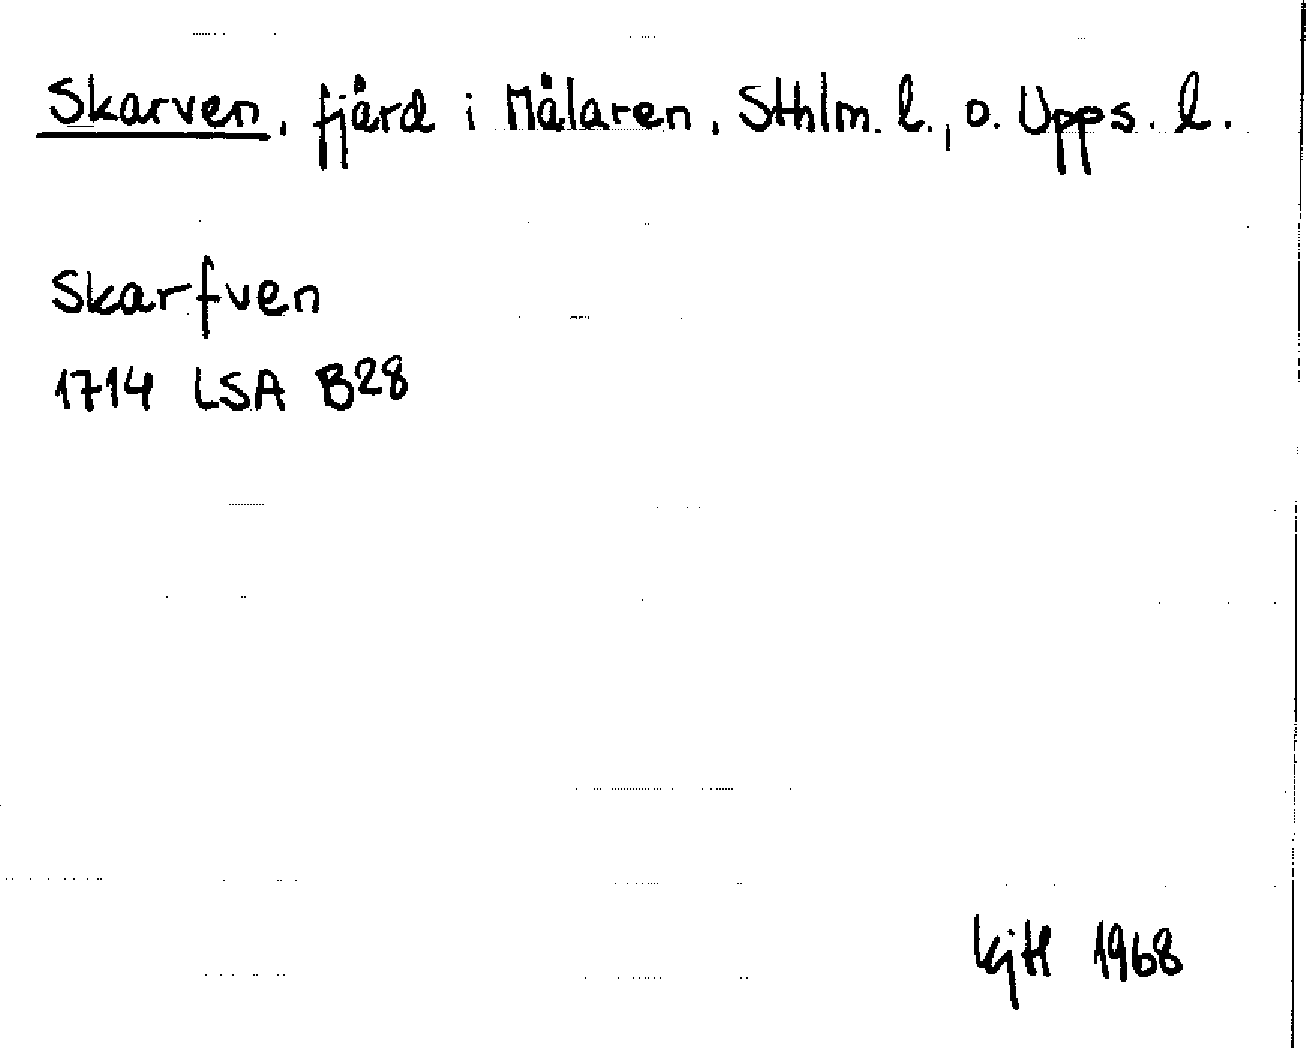 Skarven, fjärd i Mälaren, Sthlm. l., o. Upps. l.
Skarfven
1714 LSA B28
1968